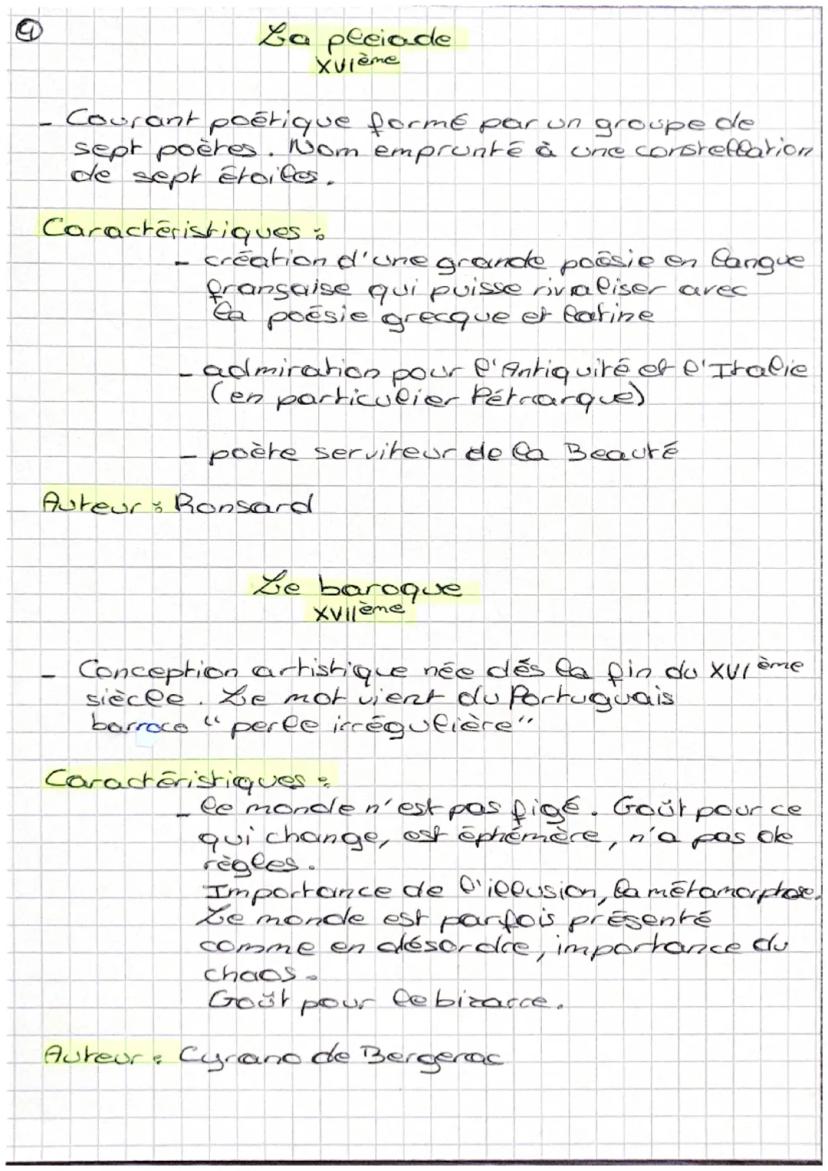 ④
La pleiade
XVIème
- Courant poétique formé par un groupe de
sept poètes. Nom emprunté à une constellation
de sept étoiles.
Caractéristiques :
- création d'une grande poésie en langue
française qui puisse rivaliser avec
la poésie grecque et latine
- admiration pour l'Antiquité et l'Italie
(en particulier Pétrarque)
- poète serviteur de la Beauté
Auteur : Ronsard
Le baroque
XVIIème
- Conception artistique née dés la fin du XVIème
siècle. Le mot vient du Portuguais
barroco " perle irrégulière"
Caractéristiques :
- le monde n'est pas figé. Goût pour ce
qui change, est éphémère, n'a pas de
règles.
Importance de l'illusion, la métamorphose.
Le monde est parfois présenté
comme en désordre, importance du
chaos.
Goût pour le bizarre.
Auteur : Cyrano de Bergerac